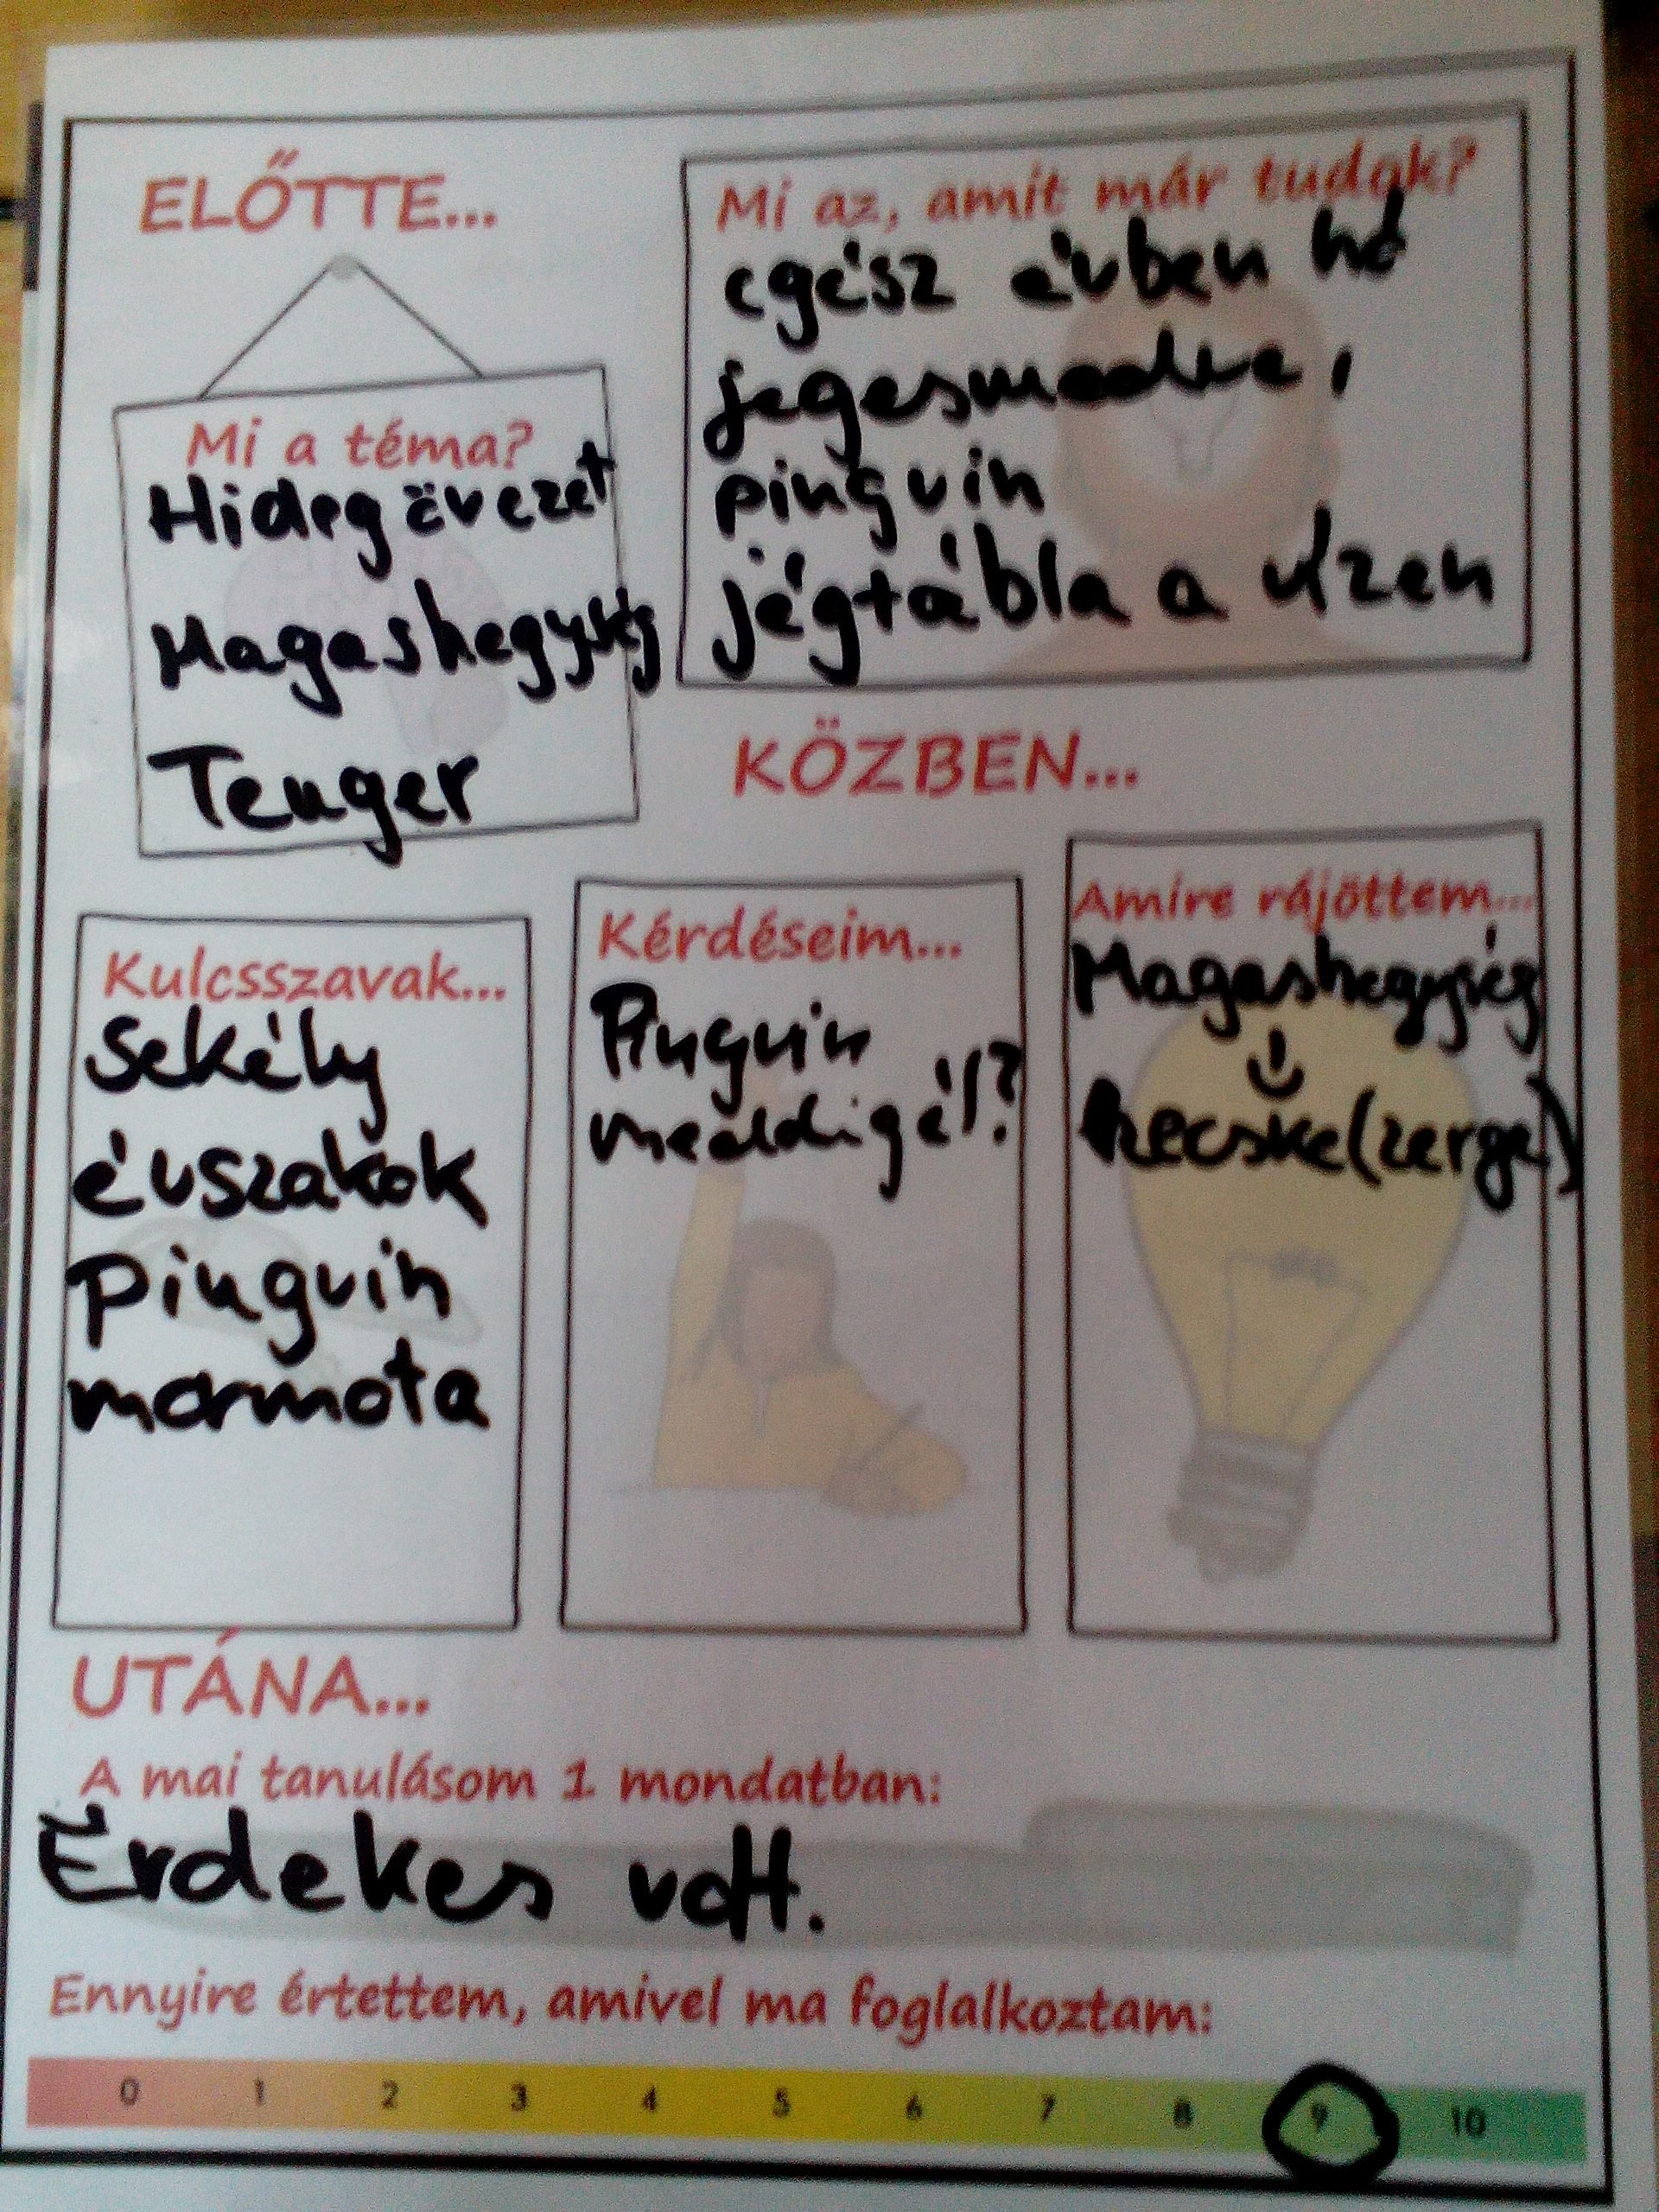 ELŐTTE...
Mi a téma?
Hideg övezet
Magashegység
Tenger
Mi az, amit már tudok?
egész évben hó
jegesmedve,
pingvin
jégtábla a vízen
KÖZBEN...
Kulcsszavak...
Sekély
évszakok
Pingvin
mormota
Kérdéseim...
Pingvin
meddig él?
Amire rájöttem...
Magashegység
↓
kecske(zerge)
UTÁNA...
A mai tanulásom 1 mondatban:
Érdekes volt.
Ennyire értettem, amivel ma foglalkoztam:
0 1 2 3 4 5 6 7 8 9 10